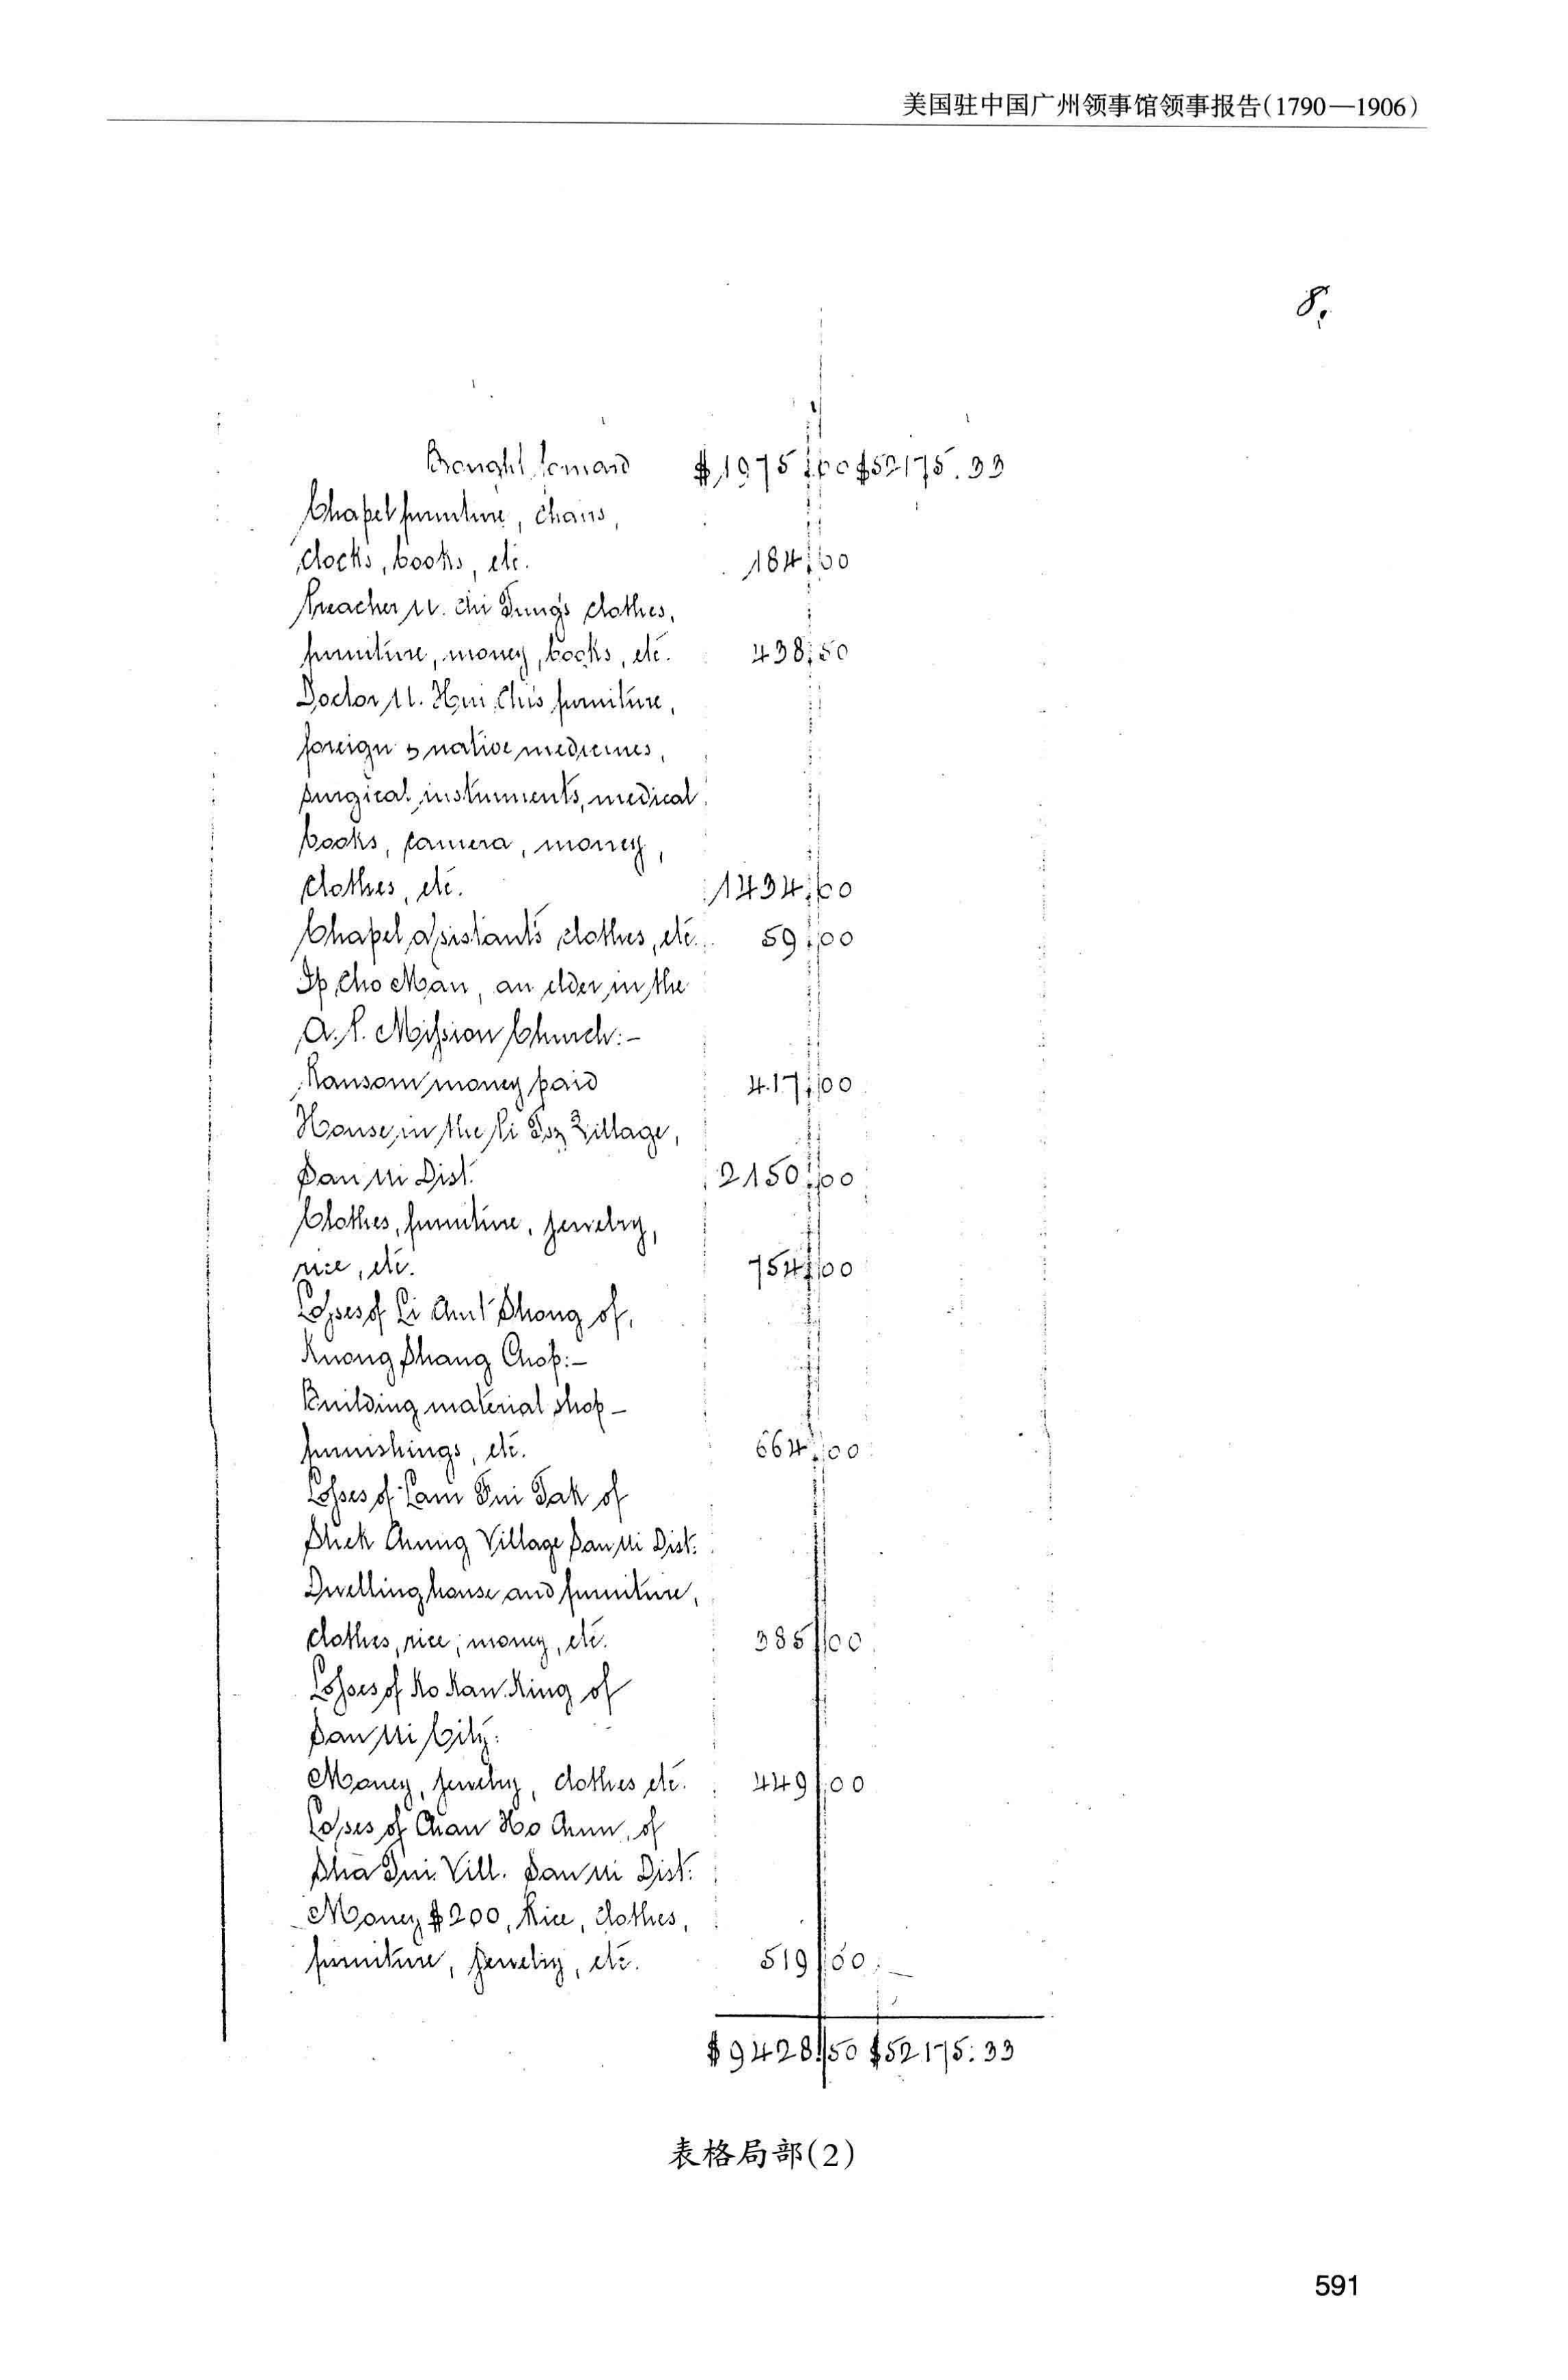 美国驻中国广州领事馆领事报告(1790—1906)
8.
Brought forward $1975 00 $52175.33
Chapel furniture, chairs,
clocks, books, etc. 184 00
Preacher U. Chi Tung's clothes,
furniture, money, books, etc. 438 50
Doctor U. Hui Chi's furniture,
foreign & native medicines,
surgical instruments, medical
books, camera, money,
clothes, etc. 1434 00
Chapel assistant's clothes, etc. 59 00
Ip Cho Man, an elder in the
A.P. Mission Church:-
Ransom money paid 417 00
House in the Li Tsz Village,
San Ui Dist. 2150 00
Clothes, furniture, jewelry,
rice, etc. 754 00
Losses of Li Shong of,
Kwong Shang Chop:-
Building material shop-
furnishings, etc. 664 00
Losses of Lam Sui Tak of
Shek Chung Village San Ui Dist.
Dwelling house and furniture,
clothes, rice, money, etc. 385 00
Losses of Ko Kan King of
San Ui City:
Money, jewelry, clothes etc. 449 00
Losses of Chan Ho Chun, of
Sha Tui Vill. San Ui Dist.
Money $200, Rice, clothes,
furniture, jewelry, etc. 519 00
$9428 50 $52175.33
表格局部(2)
591